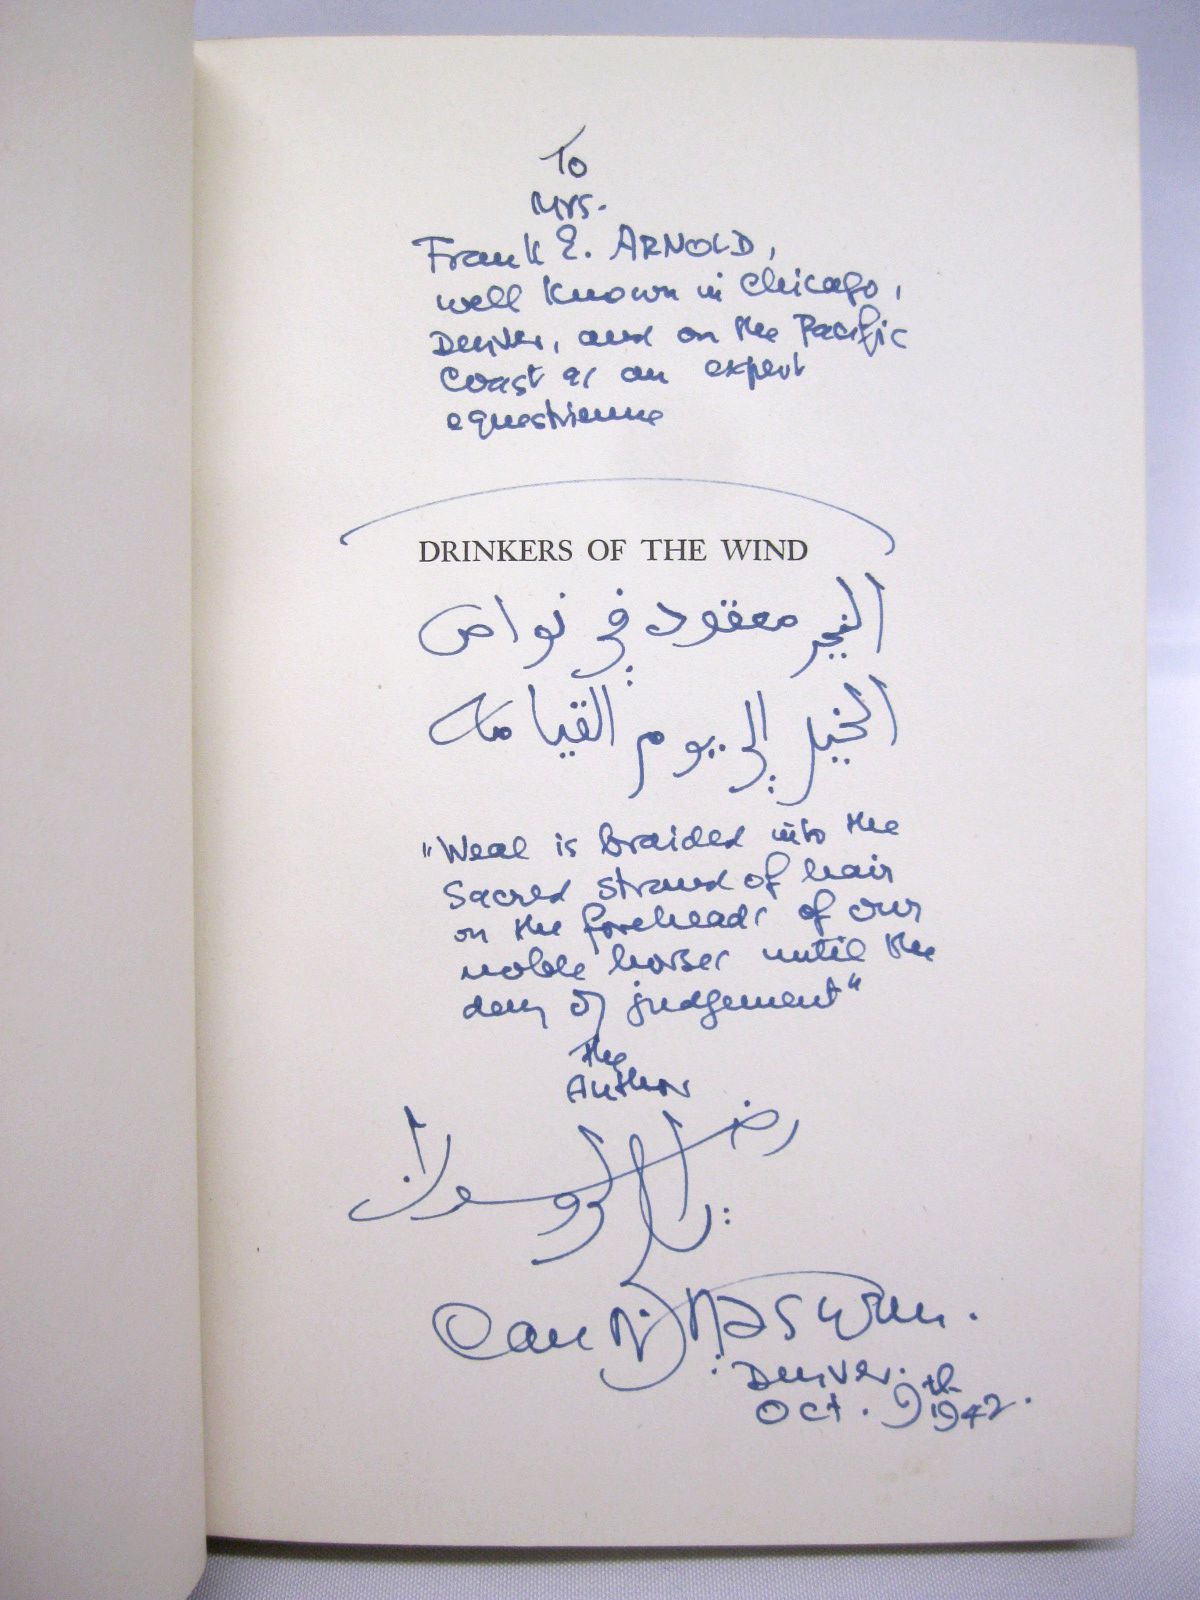 To
Mrs.
Frank E. ARNOLD,
well known in Chicago,
Denver, and on the Pacific
Coast as an expert
equestrienne
DRINKERS OF THE WIND
الخير معقود في نواص
الخيل إلى يوم القيامة
"Weal is Braided into the
Sacred strand of hair
on the foreheads of our
noble horses until the
day of judgement"
The
Author
Carl Raswan.
Denver.
Oct. 9th 1942.